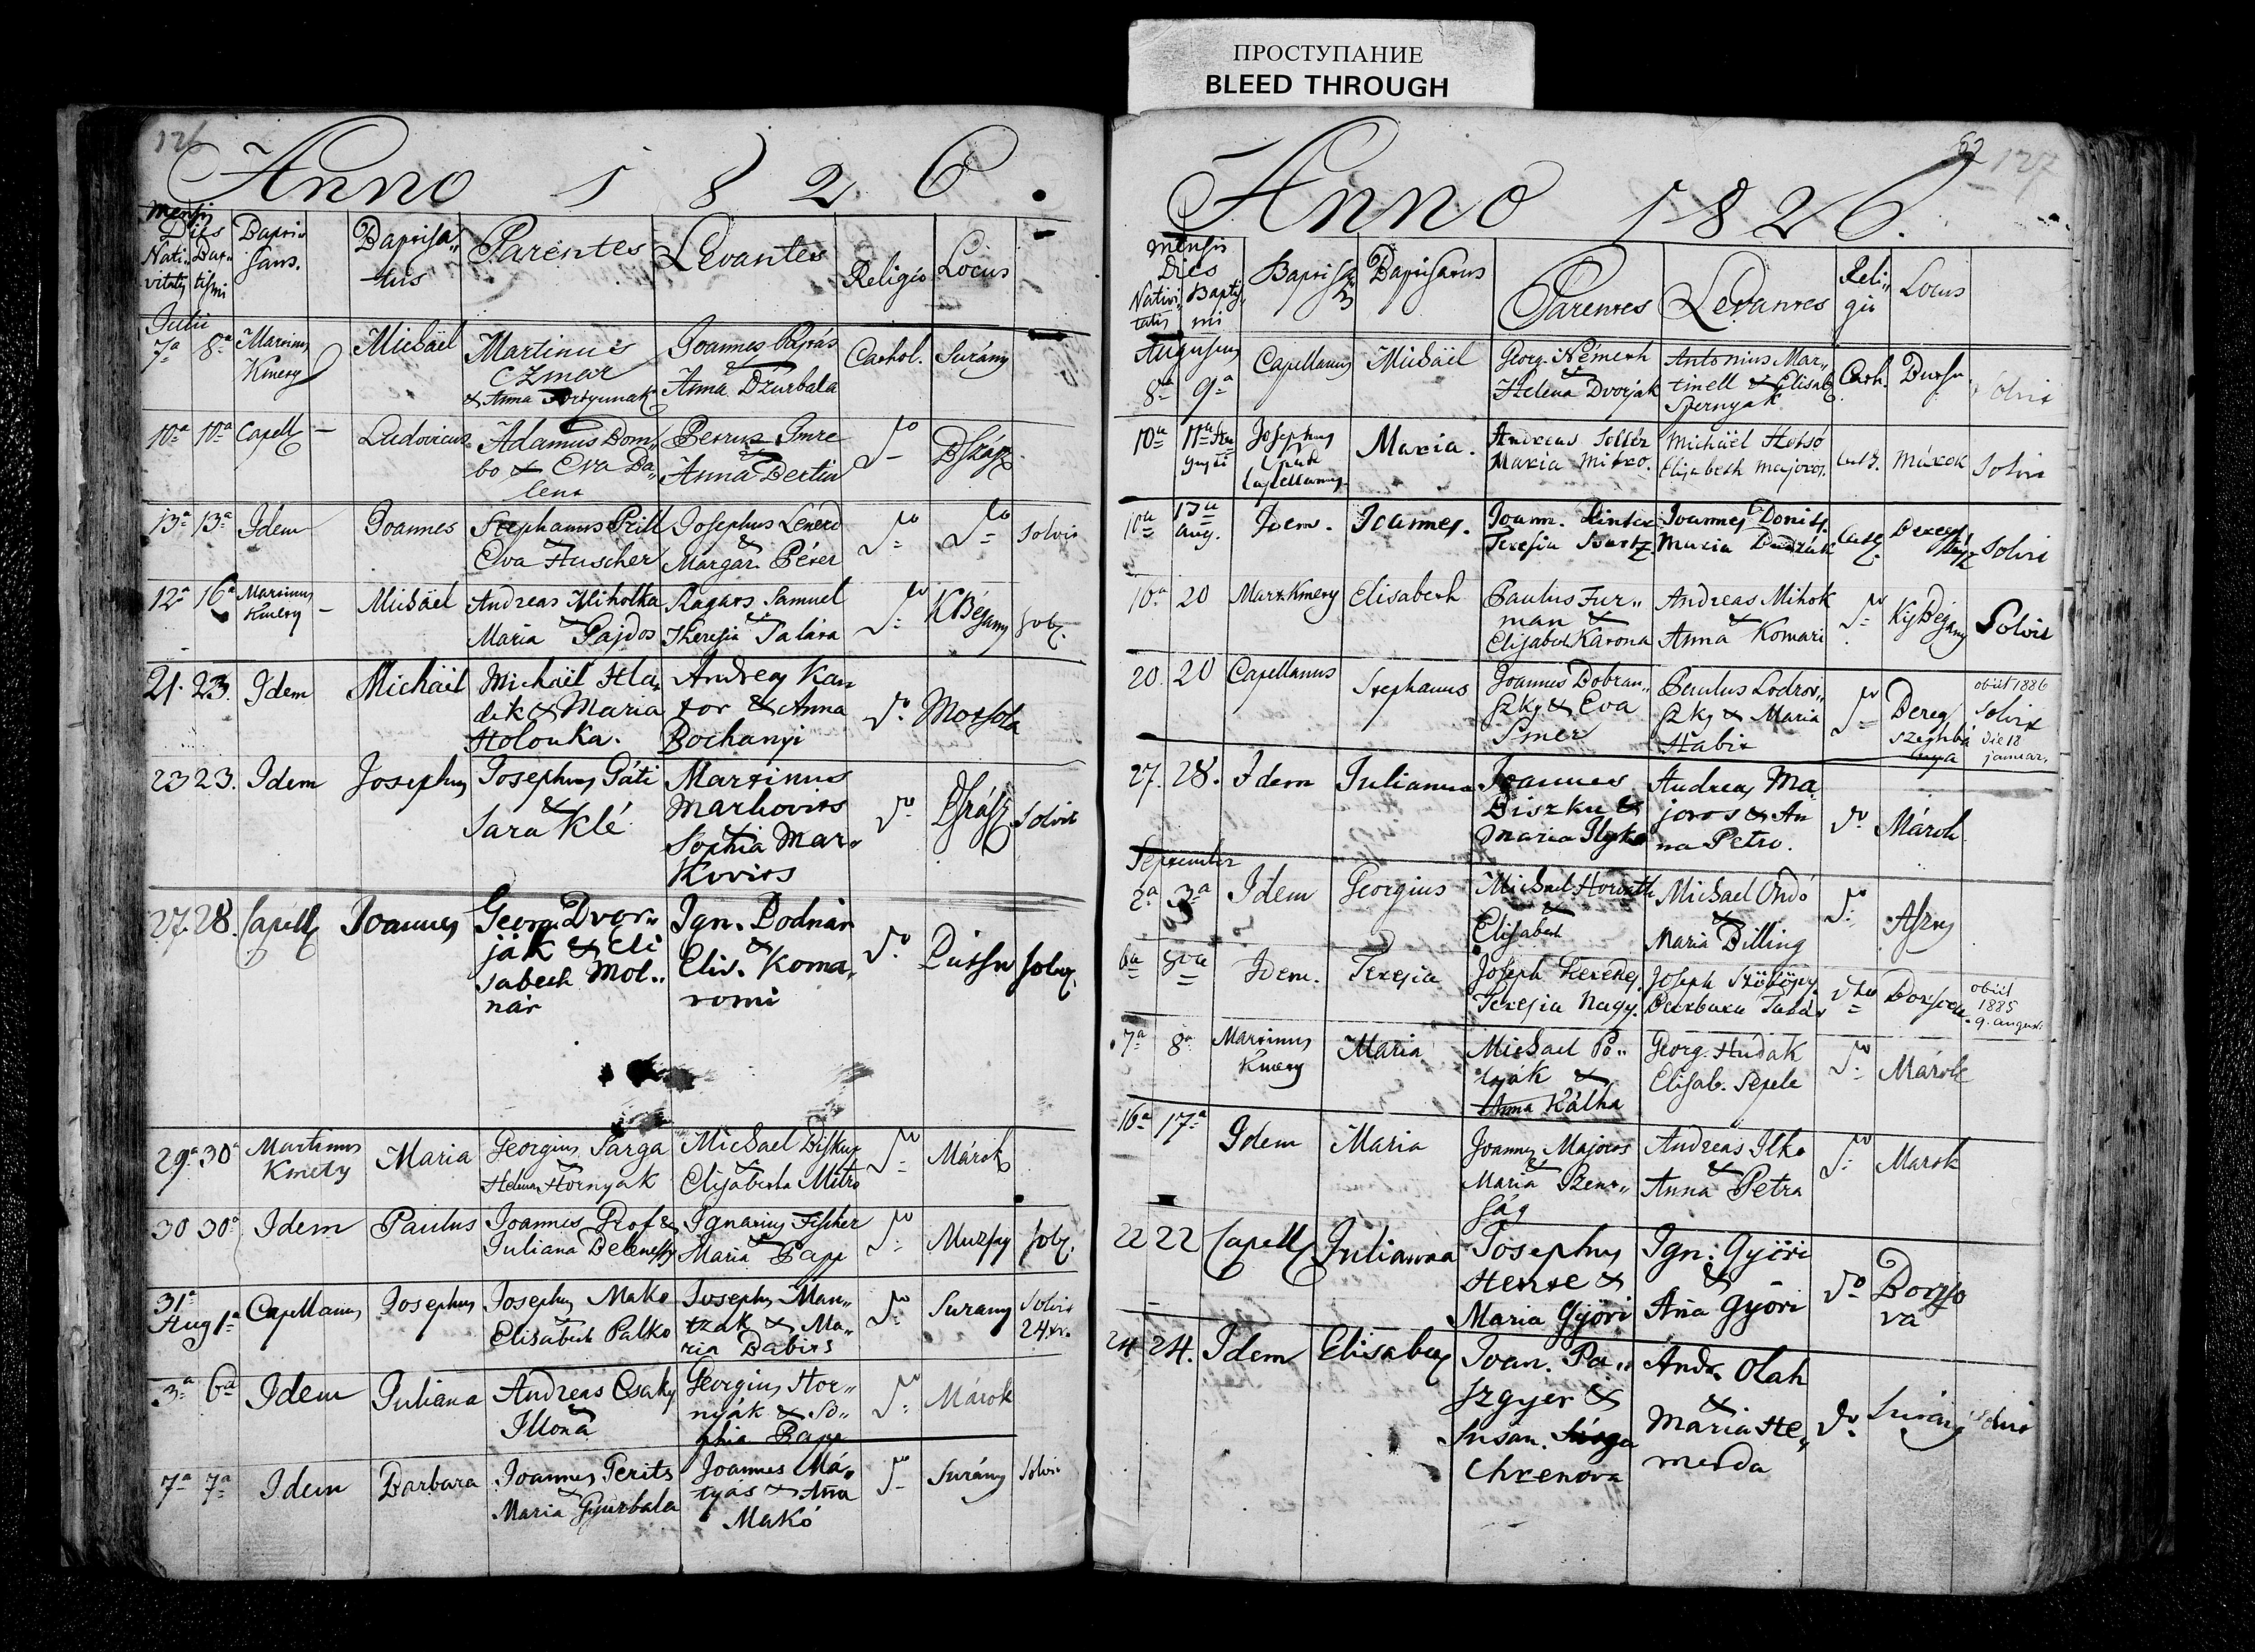 ПРОСТУПАНИЕ
BLEED THROUGH
126
Anno 1826.
Mensis
Dies
Nati- Bap-
vitatis tismi
Bapti-
sans.
Baptisa-
tus
Parentes
Levantes
Religio
Locus
Julii
7a 8a Martinus Kmety
Michäel
Martinus
Czmar
& Anna
Joannes
&
Anna Dzurbala
Cathol. Surány
10a 10a Capell
Ludovicus
Adamus Dom-
bo & Eva Ba-
lent
Petrus Imre
&
Anna Bertin
do BSzász
13a 13a Idem Joannes
Stephanus Prill
&
Eva Huscher
Josephus
&
Margar. Péter
do do Solvit
12a 16a Martinus Kmety
Michäel
Andreas Miholka
&
Maria Gajdos
Samuel
&
Theresia
do KBégany Solv.
21. 23. Idem Michäil
Michäil Hla-
dik & Maria
Holonka.
Andreas Kan-
tor & Anna
Bochanyi
do Motsola
23 23. Idem Josephus
Josephus Páti
&
Sara Klé
Martinus
Markovits
Sophia Mar-
kovits
do BSzász Solvit
27. 28. Capell Joannes
Georg. Dvor-
ják & Eli
sabeth Mol-
nár
Ign. Bodnár
&
Elis. Koma-
romi
do Solv.
29a 30a Martinus
Kmety
Maria
Georgius Varga
&
Helena Hornyak
Michael Diskuj
&
Elisabetha Mitro
do Márok
30 30a Idem Paulus
Joannes Grof &
Juliana
Ignatius Fischer
&
Maria Papp
do Muzsay Solv.
31a
Aug 1a Capellanus Josephus
Josephus Mako
Elisabeth Palko
Josephus Man-
tzak & Ma-
ria Babits
do Surany Solvit
24xr.
3a 6a Idem Juliana
Andreas Csaky
&
Illona
Georgius Hor-
nyák & So-
phia Papp
do Márok
7a 7a Idem Barbara
Joannes Perits
&
Maria Gyurbala
Joannes Má-
tyás & Aña
Makó
do Surány Solvit
62 127
Anno 1826.
Mensis
Dies
Nativi- Baptis-
tatis mi
Baptisans
Baptisatus
Parentes
Levantes
Reli-
gio
Locus
Augustus
8a 9a Capellanus Michäel
Georg. Németh
&
Helena Dvorják
Antonius Mar-
tinell & Elisab.
Szernyak
Cath. Solvit
10a 11a Au
gusti
Josephus
Capellanus
Maria.
Andreas Soltéz
Maria Mitro.
Michäel Hotsó
Elisabeth Majoros.
Cath. Márok Solvit
10a 13a
Aug. Idem. Joannes.
Joann. Pinter
Teresia Svartz
Joannes Donits.
Maria Dudzák
Cath. Solvit
16a 20 Mart. Kmety Elisabeth
Paulus Fur-
man &
Elisabeth Karona
Andreas Mihok
&
Anna Komari
do Kis Bégany Solvit
20. 20 Capellanus Stephanus
Joannes Dobran-
szky & Eva
Imer
Paulus Lodrov-
szky & Maria
Habir
do Bereg
obiit 1886
Solvit
Die 18
januar.
27. 28. Idem Julianna
Joannes
Diszku &
Maria Ilyko
Andreas Ma-
joros & An
na Petro.
do Márok
September
2a 3a Idem Georgius
Michael Horváth
&
Elisabeth
Michael Ondó
&
Maria Billing
do
6a 8va Idem. Teresia
Joseph Kerekes.
Teresia Nagy.
Joseph
Barbara Takáts
dto Borsova
obiit
1885
9. august.
7a 8a Martinus
Kmety
Maria
Michael Po-
lyák &
Anna Kátha
Georg. Hudak
Elisab. Sepele
do Márok
16a 17a Idem Maria
Joannes Majoros
&
Maria
ság
Andreas Ilko
&
Anna Petra
do Marok
22 22 Capell Julianna
Josephus
&
Maria Győri
Ign. Győri
&
Aña Győri
do Borso
va
24 24. Idem Elisabeth
Joan. Pa-
szgyer &
Susan.
Chrenova
Andr. Olah
&
Maria He-
merda
do Surány Solvit